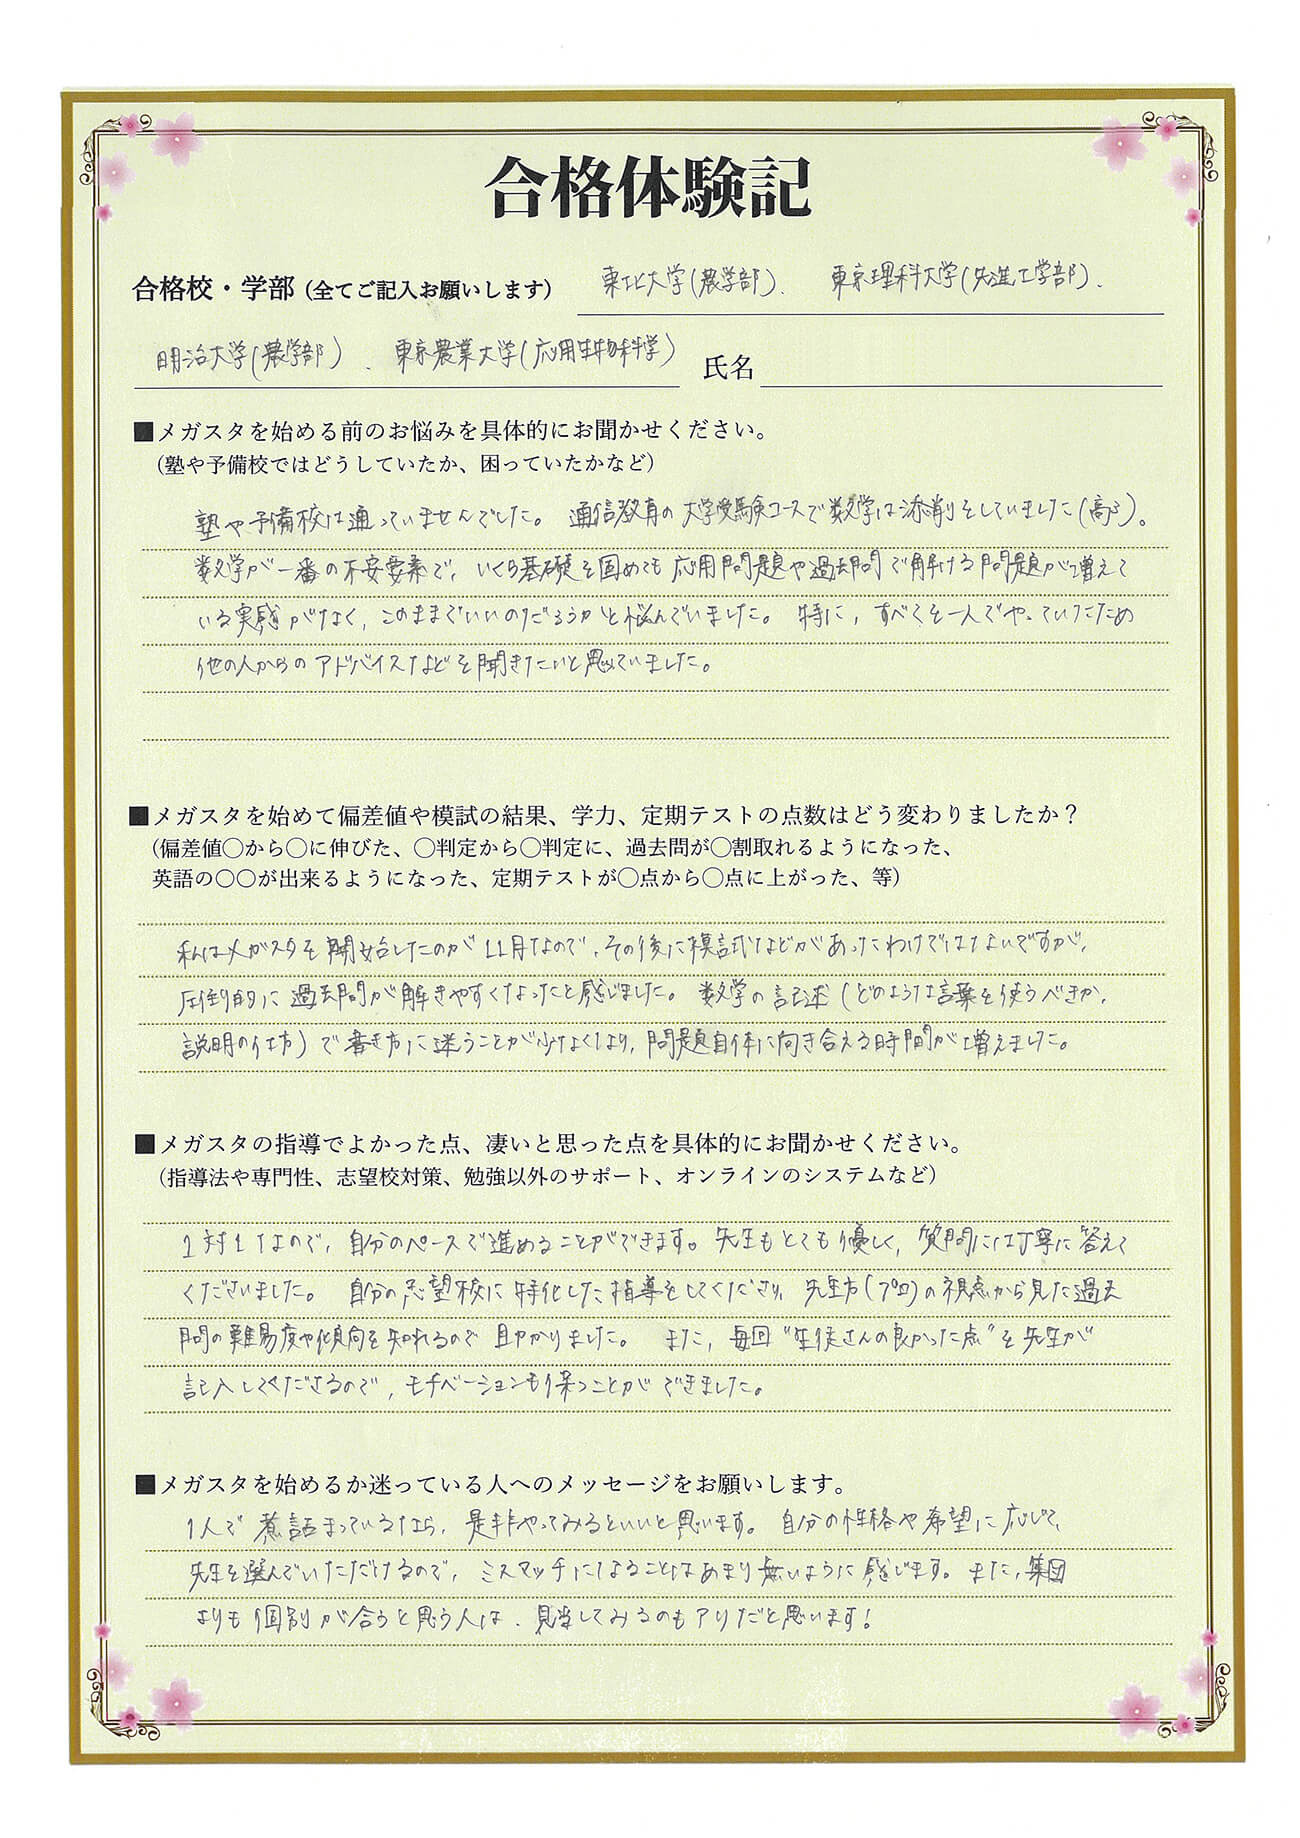 合格体験記
合格校・学部（全てご記入お願いします） 東北大学(農学部)、 東京理科大学(先進工学部)、
明治大学(農学部) 、 東京農業大学(応用生物科学) 氏名
■メガスタを始める前のお悩みを具体的にお聞かせください。
（塾や予備校ではどうしていたか、困っていたかなど）
塾や予備校は通っていませんでした。 通信教育の大学受験コースで数学は添削をしていました(高3)。
数学が一番の不安要素で、いくら基礎を固めても応用問題や過去問で解ける問題が増えて
いる実感がなく、このままでいいのだろうかと悩んでいました。 特に、すべてを一人でやっていたため
他の人からのアドバイスなどを聞きたいと思っていました。
■メガスタを始めて偏差値や模試の結果、学力、定期テストの点数はどう変わりましたか？
（偏差値〇から〇に伸びた、〇判定から〇判定に、過去問が〇割取れるようになった、
英語の〇〇が出来るようになった、定期テストが〇点から〇点に上がった、等）
私はメガスタを開始したのが11月なので、その後に模試などがあったわけではないですが、
圧倒的に過去問が解きやすくなったと感じました。 数学の記述(どのような言葉を使うべきか、
説明の仕方)で書き方に迷うことが少なくなり、問題自体に向き合える時間が増えました。
■メガスタの指導でよかった点、凄いと思った点を具体的にお聞かせください。
（指導法や専門性、志望校対策、勉強以外のサポート、オンラインのシステムなど）
1対1なので、自分のペースで進めることができます。先生もとても優しく、質問には丁寧に答えて
くださいました。 自分の志望校に特化した指導をしてくださり、先生方(プロ)の視点から見た過去
問の難易度や傾向を知れるので助かりました。 また、毎回"生徒さんの良かった点"を先生が
記入してくださるので、モチベーションも保つことができました。
■メガスタを始めるか迷っている人へのメッセージをお願いします。
1人で煮詰まっているなら、是非やってみるといいと思います。 自分の性格や希望に応じて、
先生を選んでいただけるので、ミスマッチになることはあまり無いように感じます。また、集団
よりも個別が合うと思う人は、見学してみるのもアリだと思います！